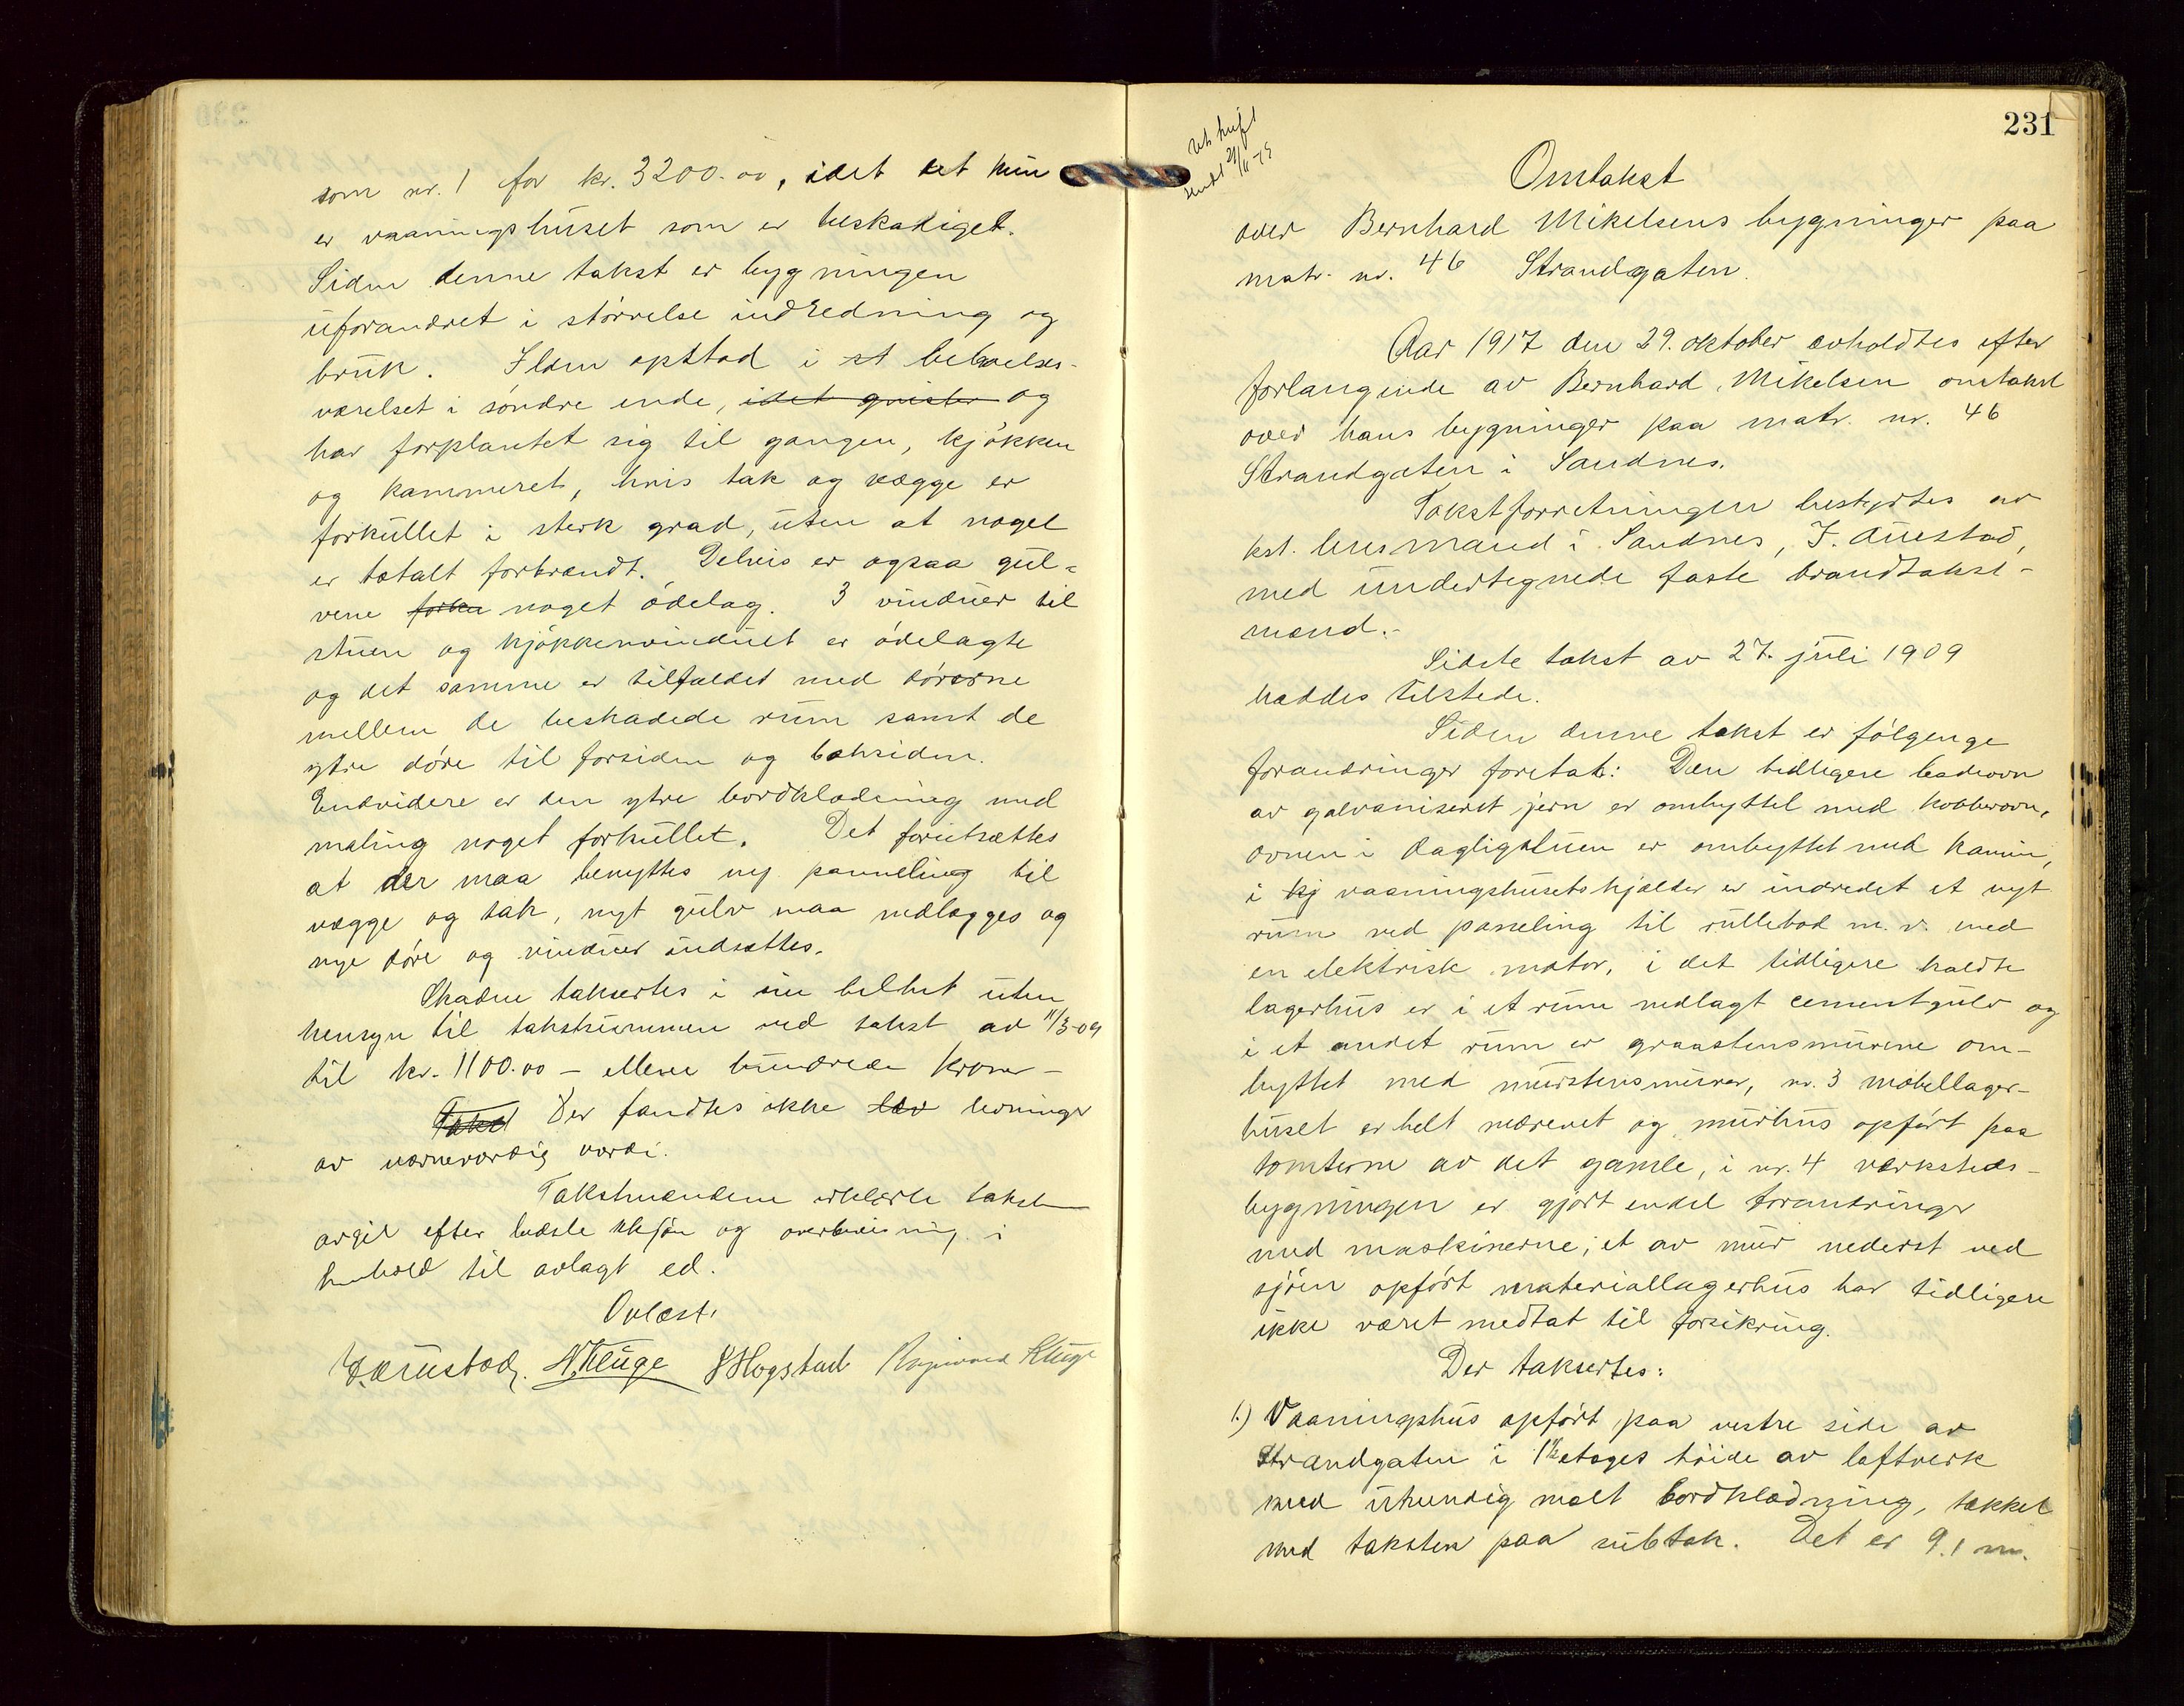 som nr. 1 for kr. 3200.00, idet det kun
er vaaningshuset som er beskadiget.
Siden denne takst er bygningen
uforandret i størrelse indredning og
bruk. Ilden opstod i st beboelses-
værelset i søndre ende, idet gnister og
har forplantet sig til gangen, kjøkken
og kammeret, hvis tak og vægge er
forkullet i sterk grad, uten at noget
er totalt forbrændt. Delvis er ogsaa gul-
vene forku noget ødelag. 3 vinduer til
stuen og kjøkkenvinduet er ødelagte
og det samme er tilfældet med dørerne
mellem de beskadede rum samt de
ytre døre til forsiden og baksiden.
Endvidere er den ytre bordklædning med
maling noget forkullet. Det forutsættes
at der maa benyttes ny panneling til
vægge og tak, nyt gulv maa nedlægges og
nye døre og vinduer indsættes.
Skaden taksertes i sin helhet uten
hensyn til takstsummen ved takst av 11/3-09
til kr. 1100.00 - elleve hundrede kroner -
Takst Der fandtes ikke lev levninger
av nævneværdig værdi.
Takstmændene erklærte taksten
avgit efter bedste skjøn og overbevisning i
henhold til avlagt ed.
Oplæst.
J. Auestad. N. Kluge J Hogstad Ragnvald Kluge
231
Utskrift
sendt
Omtakst
over Bernhard Mikelsens bygninger paa
matr. nr. 46 Strandgaten.
Aar 1917 den 29. oktober avholdtes efter
forlangende av Bernhard Mikelsen omtakst
over hans bygninger paa matr. nr. 46
Strandgaten i Sandnes.
Takstforretningen bestyrtes av
kst. lensmand i Sandnes, J. Auestad,
med undertegnede faste brandtakst-
mænd.-
Sidste takst av 27. juli 1909
haddes tilstede.
Siden denne takst er følgenge
forandringer foretat: Den tidligere badeovn
av galvaniseret jern er ombyttet med kobberovn,
ovnen i dagligstuen er ombyttet med kamin,
i kj vaaningshusets kjælder er indredet et nyt
rum ved paneling til rullebod m. v. med
en elektrisk motor, i det tidligere kaldte
lagerhus er i et rum nedlagt cementgulv og
i et andet rum er graastensmurene om-
byttet med murstensmurer, nr. 3 møbellager-
huset er helt nedrevet og murhus opført paa
tomterne av det gamle, i nr. 4 værksteds-
bygningen er gjort endel forandringer
med maskinerne; et av mur nederst ved
sjøen opført materiallagerhus har tidligere
ikke været medtat til forsikring.
Der taksertes:
1.) Vaaningshus opført paa vestre side av
Strandgaten i 1½ etages høide av loftverk
med utvendig malt bordklædning, tækket
med taksten paa subtak. Det er 9.1 m.